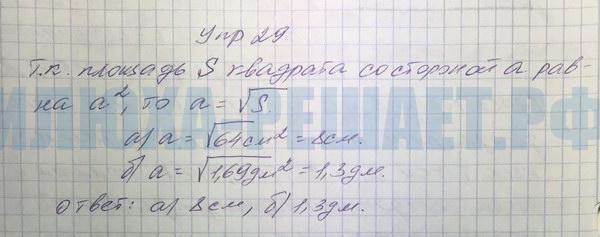 Упр 29
Т.к. площадь S квадрата со стороной a рав-
на a², то a = √S
а) a = √64см² = 8см.
б) a = √1,69дм² = 1,3дм.
ответ: а) 8см, б) 1,3дм.